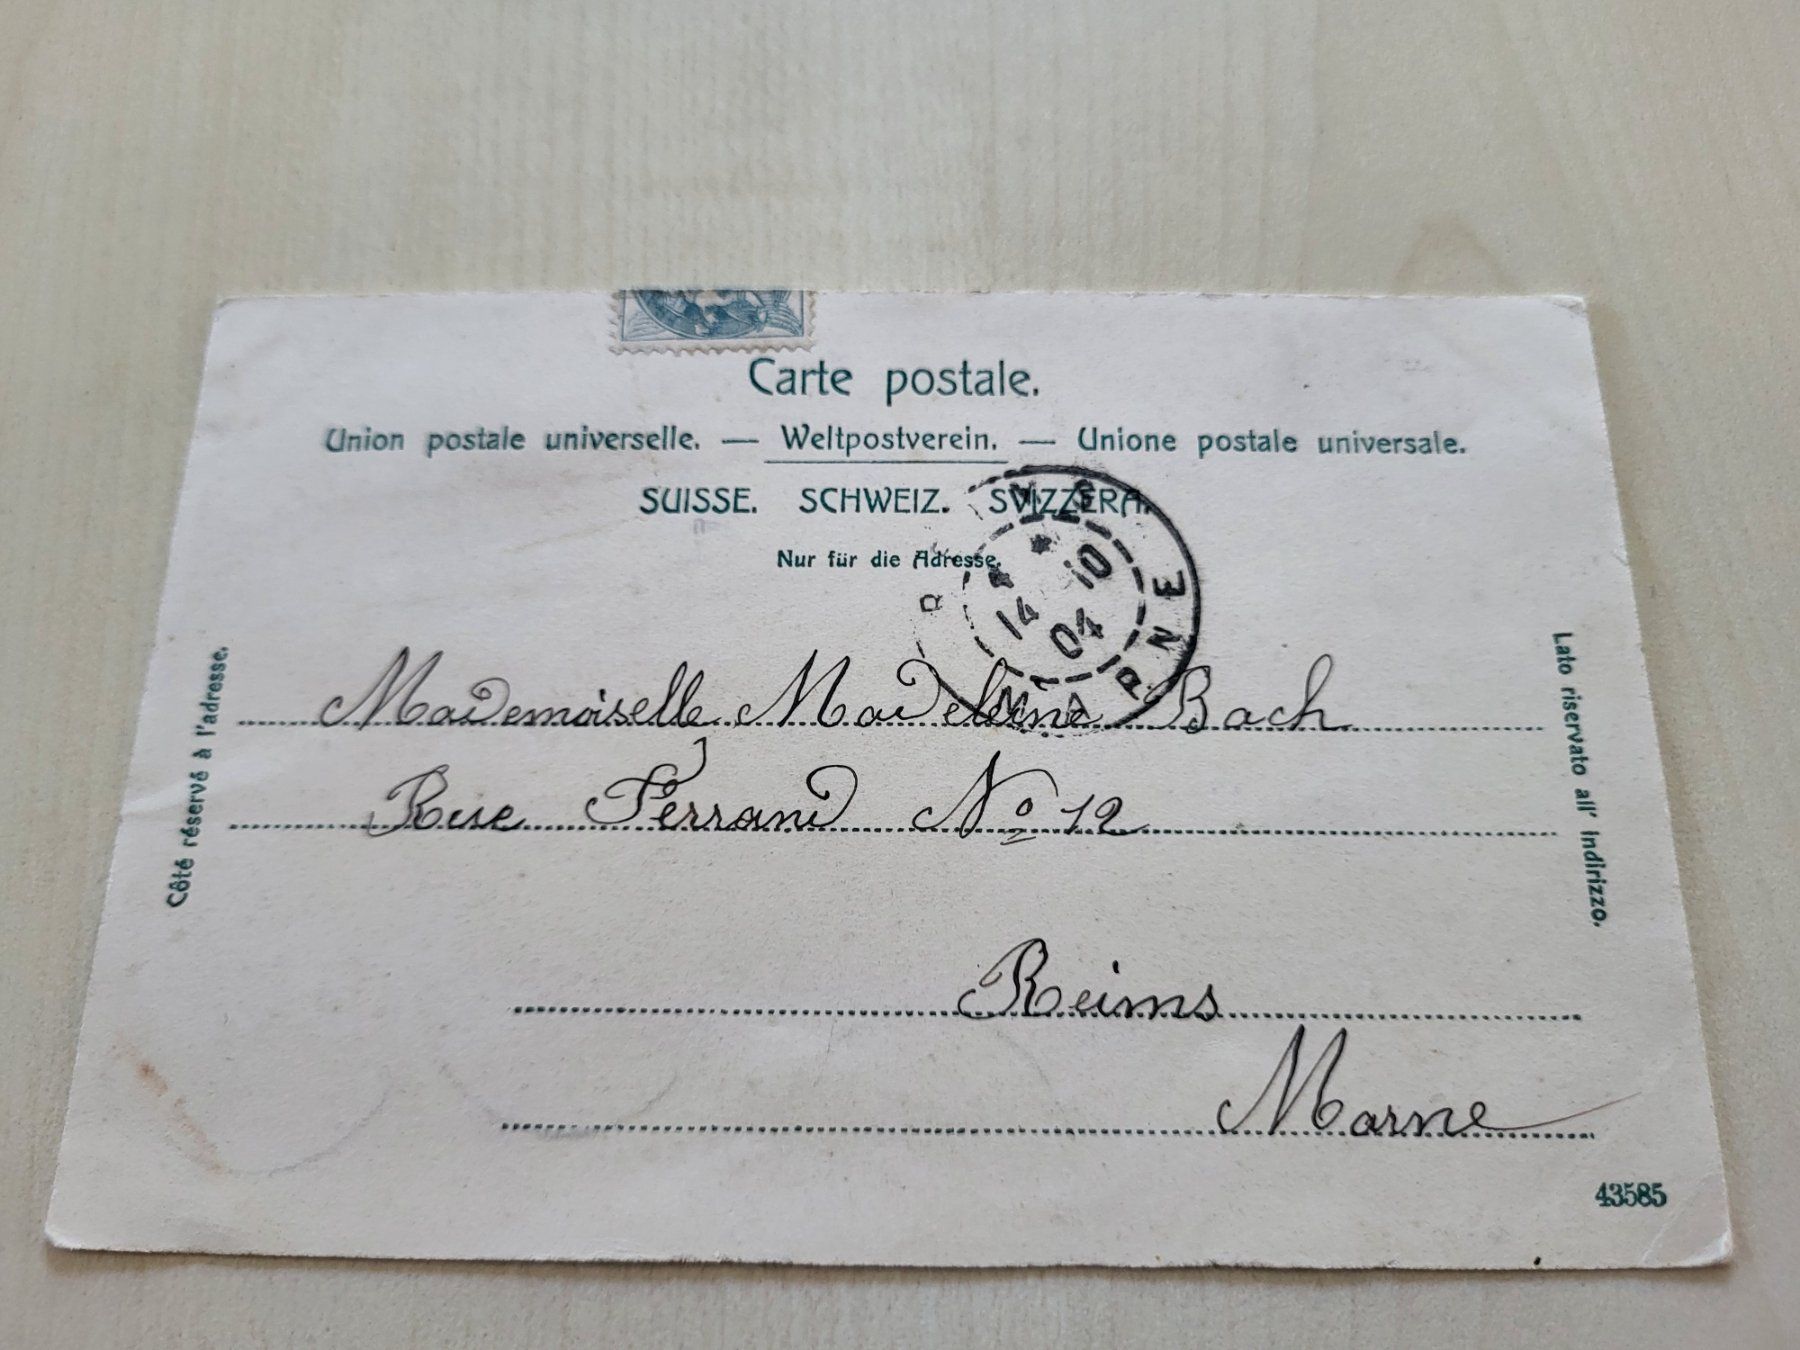 Carte postale.
Union postale universelle. — Weltpostverein. — Unione postale universale.
SUISSE. SCHWEIZ. SVIZZERA.
Nur für die Adresse.
14 10
04
MARNE
Côté réservé à l'adresse.
Mademoiselle Madeleine Bach
Rue Ferrand No 12
Reims
Marne
Lato riservato all' indirizzo.
43585